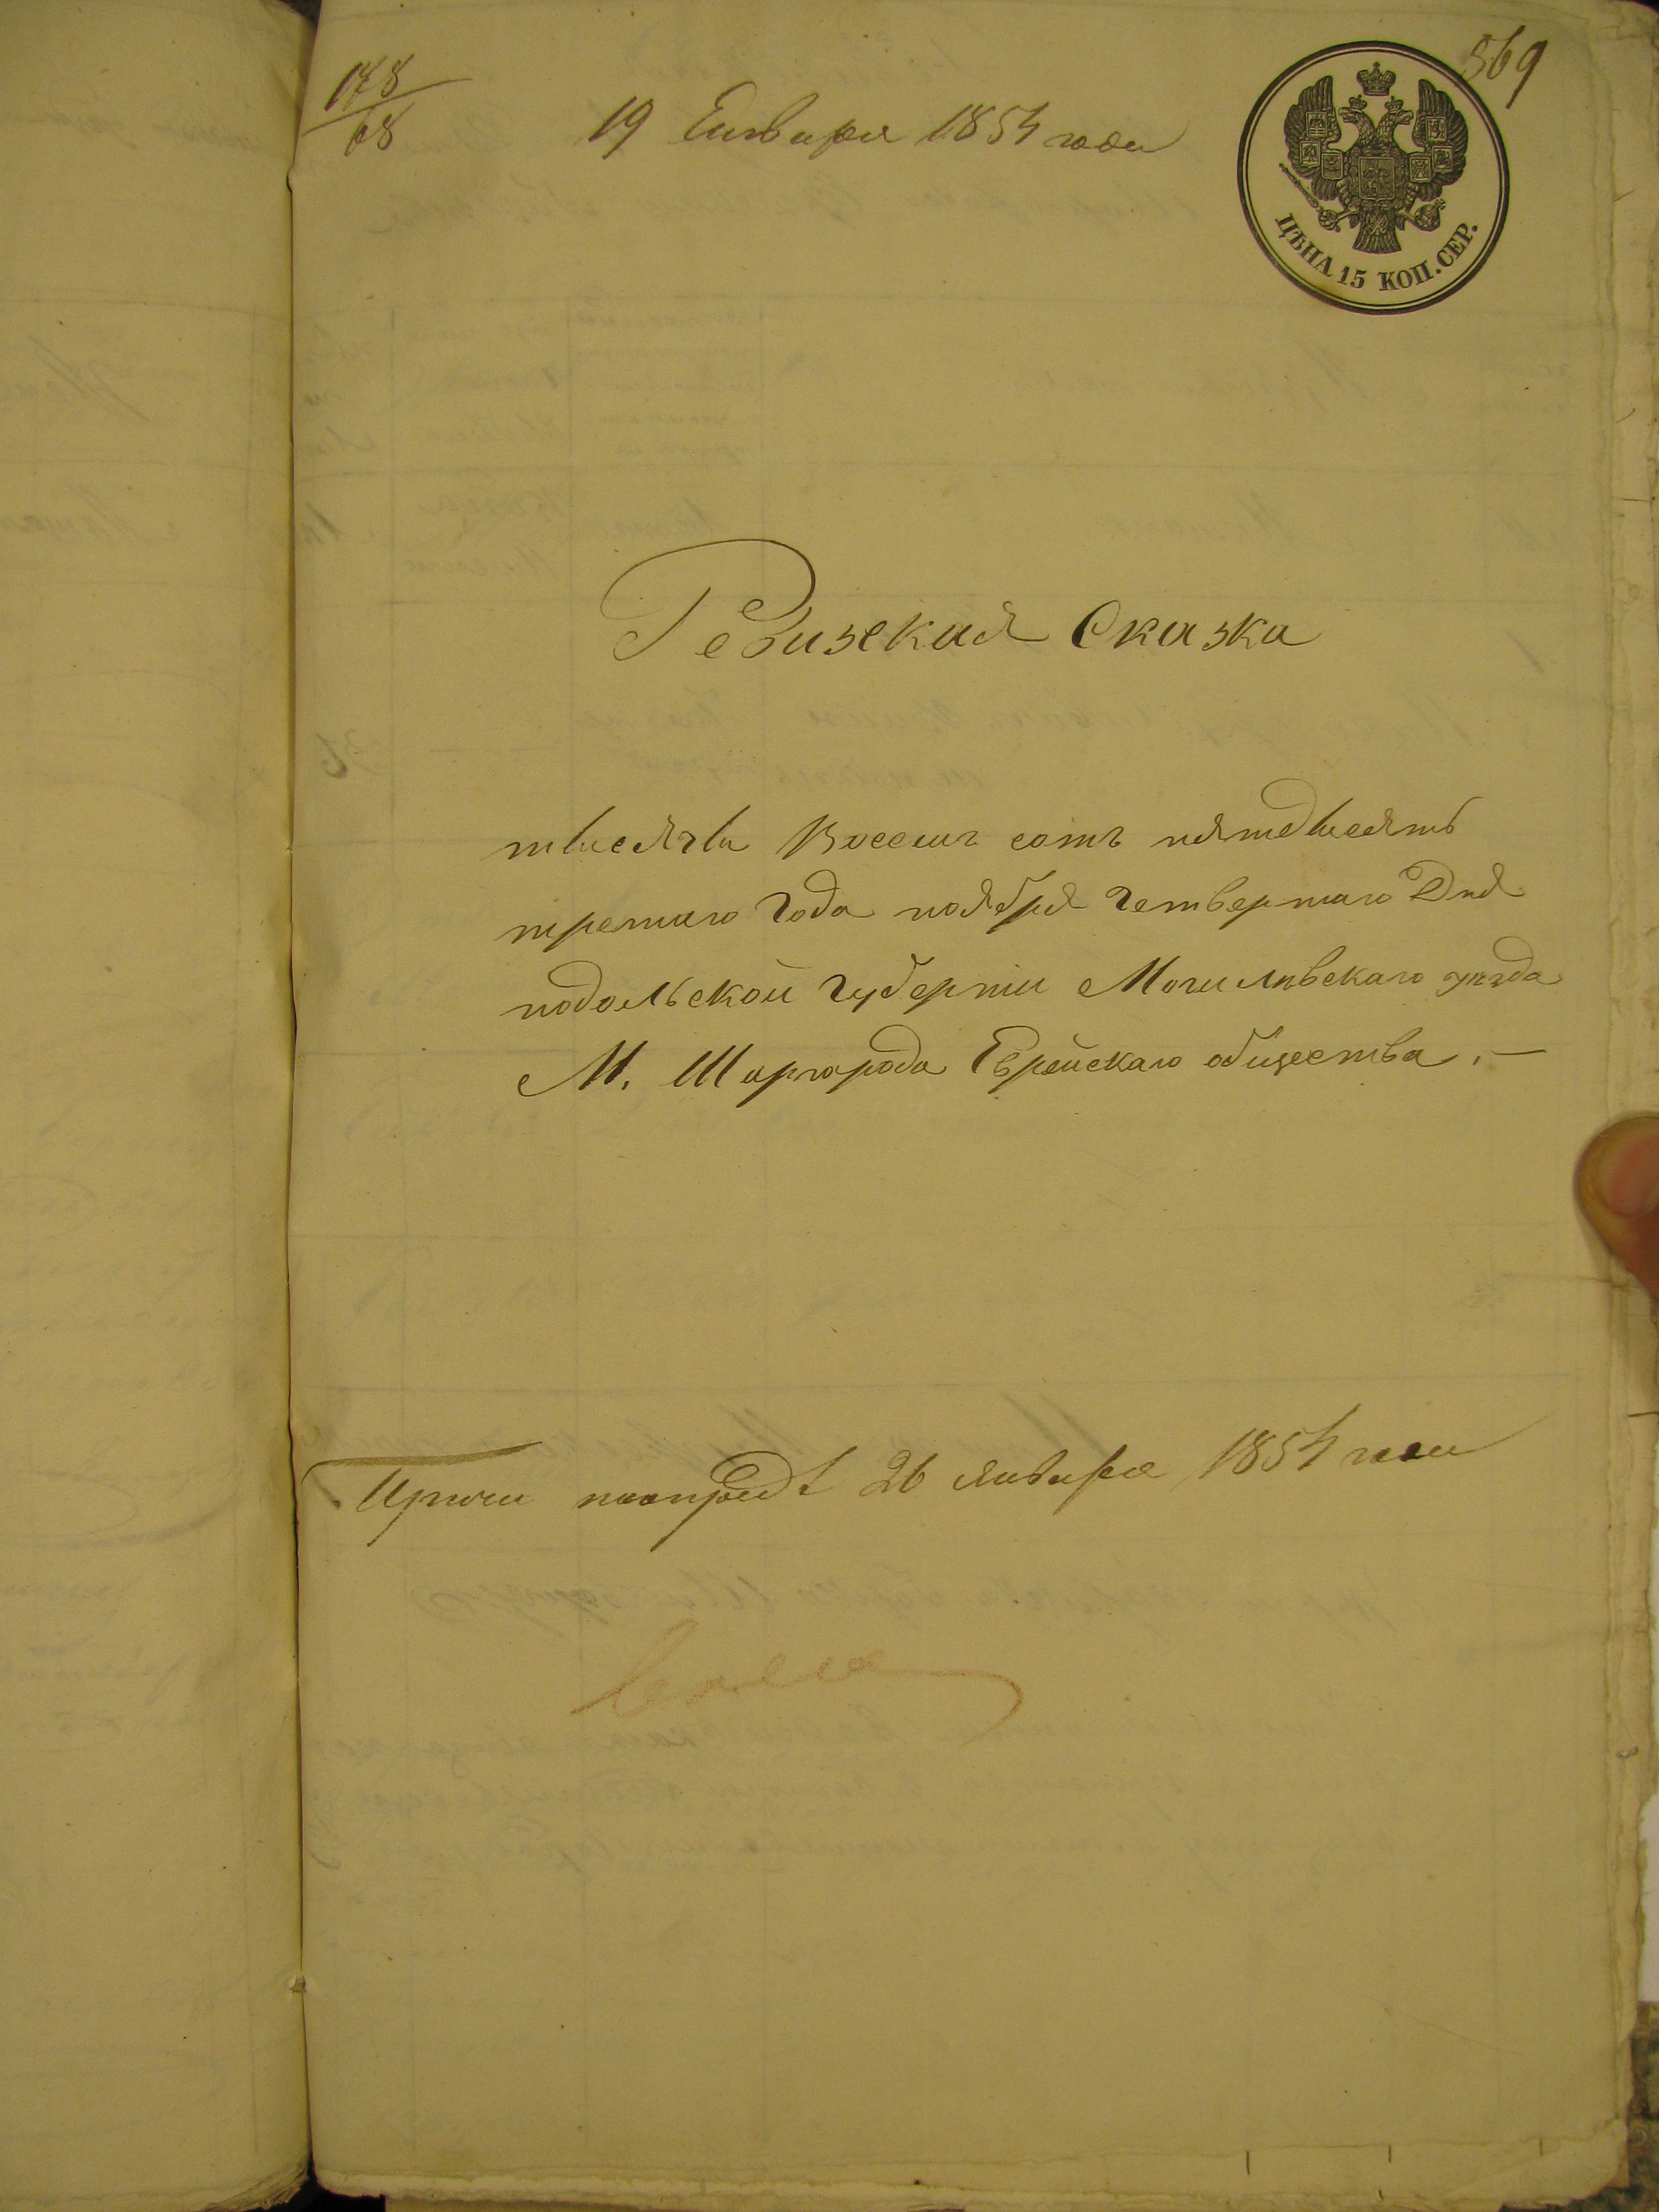 178
68
19 Января 1854 года
569
ЦѢНА 15 КОП. СЕР.
Ревизская Сказка
тысяча Восемъ сотъ пятдесять
третаго Года ноября Четвертаго Дня
подольской Губерніи Могилевскаго уѣзда
М. Шаргорода Еврейскаго общества. —
26 января 1854 года